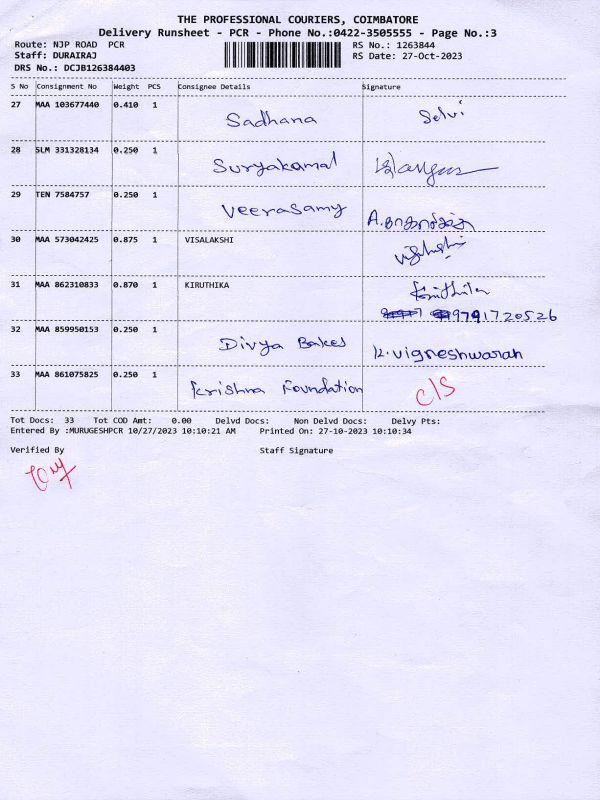 THE PROFESSIONAL COURIERS, COIMBATORE
Delivery Runsheet - PCR - Phone No.:0422-3505555 - Page No.:3
Route: NJP ROAD PCR RS No.: 1263844
Staff: DURAIRAJ RS Date: 27-Oct-2023
DRS No.: DCJB126384403
S No Consignment No Weight PCS Consignee Details Signature
27 MAA 103677440 0.410 1 Sadhana Selvi
28 SLM 331328134 0.250 1 Suryakamal
29 TEN 7584757 0.250 1 Veerasamy
30 MAA 573042425 0.875 1 VISALAKSHI
31 MAA 862310833 0.870 1 KIRUTHIKA
9791720526
32 MAA 859950153 0.250 1 Divya Bakes K.Vigneshwaran
33 MAA 861075825 0.250 1 Krishna Foundation C/S
Tot Docs: 33 Tot COD Amt: 0.00 Delvd Docs: Non Delvd Docs: Delvy Pts:
Entered By :MURUGESHPCR 10/27/2023 10:10:21 AM Printed On: 27-10-2023 10:10:34
Verified By Staff Signature